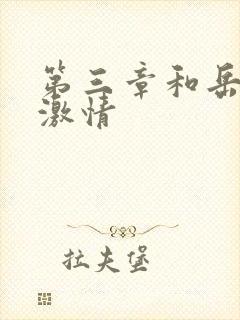 第三章和岳
激情
拉夫堡